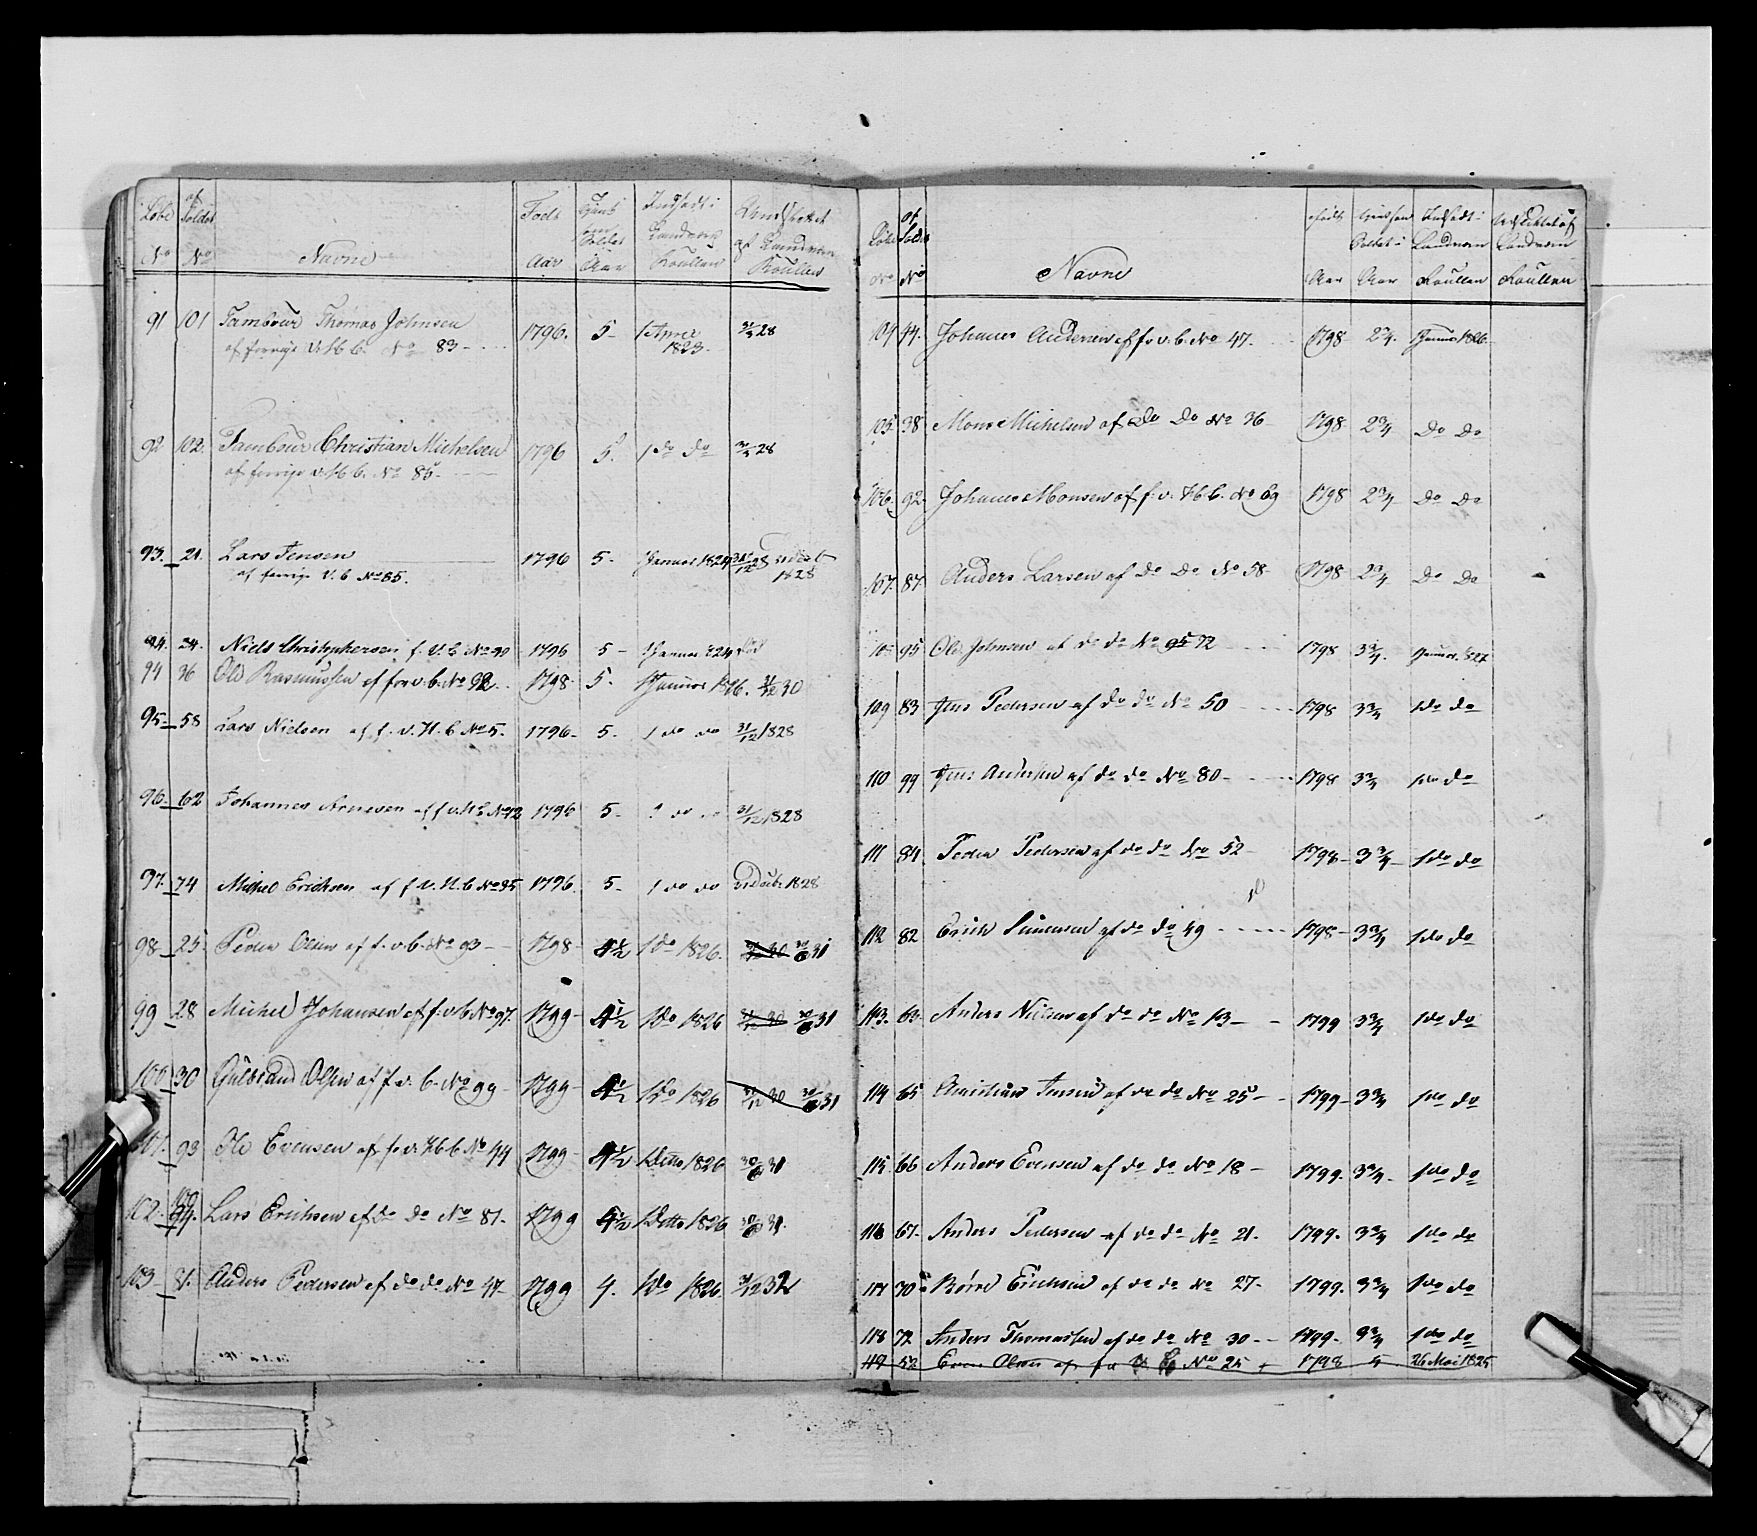 Løbe af Soldat Navne Født Tient som Soldat Indsadt i Landværn Udslettet af Landværn
No No Aar Aar Roullen Roullen
91 101 Tambour Thomas Johnsen 1796. 5- 1 April 31/3 28
af forrige V: H b. No 83- 1823.
92 102. Tambour Christian Michelsen 1796 5. 1 do do 31/3 28
af forrige v. H b. No 85-
93. 21. Lars Jensen 1796 5- 1 Januar 1824 31/12 28
af forrige V. b No 85. 1828
94. 24. Niels Christophersen f. V. b No 90 1796 5- 1 Januar 1824
94 36 Ole Rasmussen af for v. b. No 92. 1798. 5. 1 Januar 1826. 31/12 30
95- 58 Lars Nielsen af f. v. H. b No 5. 1796- 5- 1 do do 31/12 1828
96- 62 Johannes Arnesen af f v. H b No 12 1796 5- 1 do do 31/12 1828
97. 74 Michel Erichsen af f v. H. b No 35 1796. 5- 1 do do 31 Decbr 1828
98- 25 Peder Olsen af f. v. b. No 93 - 1798- 4 1/2 1 do 1826. 31/12 30 30/6 31
99 28 Michel Johansen af f. v. b No 97. 1799- 4 1/2 1 do 1826 31/12 30 30/6 31
100 30 Gulbrand Olsen af f v. b. No 99 - 1799- 4 1/2 1 do 1826 31/12 30 30/6 31
101. 93 Ole Evensen af f v. H b No 44 1799- 4 1/2 1 Detto 1826 30/6 31
102- 94. 100 Lars Erichsen af Do Do No 81- 1799 4 1/2 1 Detto 1826 30/6 31.
103- 31. Anders Pedersen af do do No 47- 1799 4. 1 do 1826. 31/12 32
Løbe af Soldat Navne født tient som Soldat i Indsadt i Landværn Udslettet af Landværn
No No Aar Aar Roullen Roullen
104 44. Johannes Andersen af f v. b. No 47. 1798 2 3/4. 1 Januar 1826.
105. 38 Mons Michelsen af Do Do No 36 1798 2 3/4 Do Do
106. 92. Johannes Monsen af f. v. H b. No 69 1798 2 3/4 Do Do
107. 87. Anders Larsen af Do Do No 58- 1798 2 3/4 Do Do
108 95 Ole Johnsen af do do No 95 72 1798 3 3/4. 1 Januar 1827
109 83 Jens Pedersen af do do No 50 1798 3 3/4 1 do do
110 99 Jens Andersen af do do No 80- 1798 3 3/4 1 do do
111 84. Peder Pedersen af do do No 52- 1798- 3 3/4- 1 do do
112 82 Erich Simensen af do do 49 1798- 3 3/4 1 do do
113. 63. Anders Nielsen af do do No 13- 1799 3 3/4 1 do do
114 65 Christian Jensen af do do No 25- 1799- 3 3/4 1 do do
115 66 Anders Evensen af do do No 18- 1799. 3 3/4- 1 do do
116 67. Anders Pedersen af do do No 21. 1799. 3 3/4 1 do do
117 70 Børre Erichsen af do do No 27- 1799. 3 3/4 1 do do
118 72. Anders Thomassen af do do No 30- 1799. 3 3/4 1 do do
49 52 Even Olsen af f v. b No 25 1798 5 26 Mai 1825